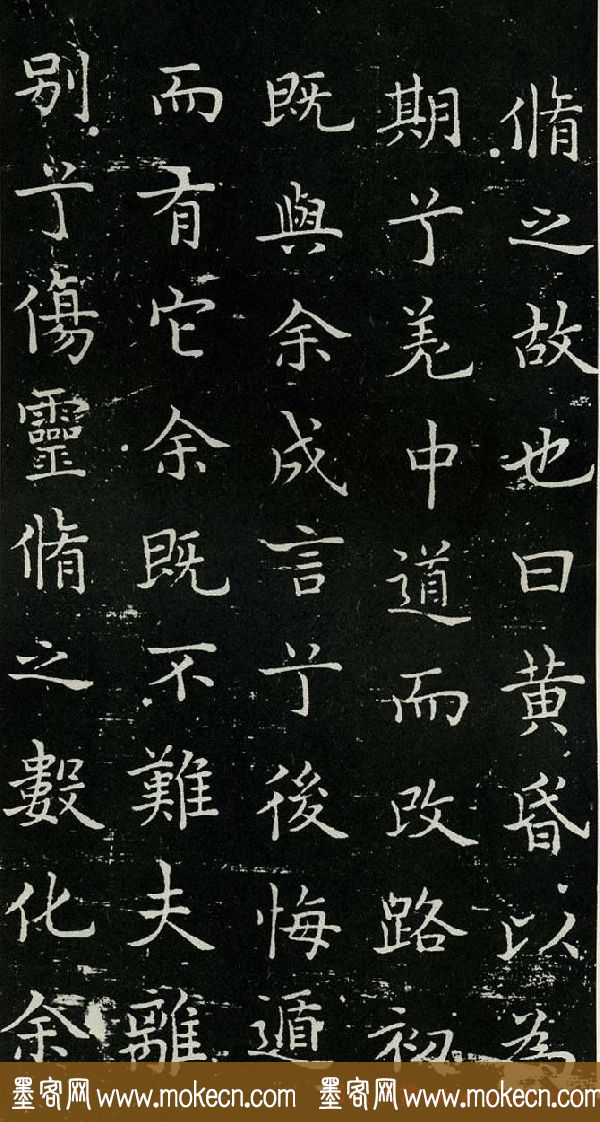 脩之故也曰黄昬以為
期兮羌中道而改路初
既與余成言兮後悔遁
而有它余既不難夫離
别兮傷靈脩之數化余
墨客网 www.mokecn.com 墨客网 www.mokecn.com